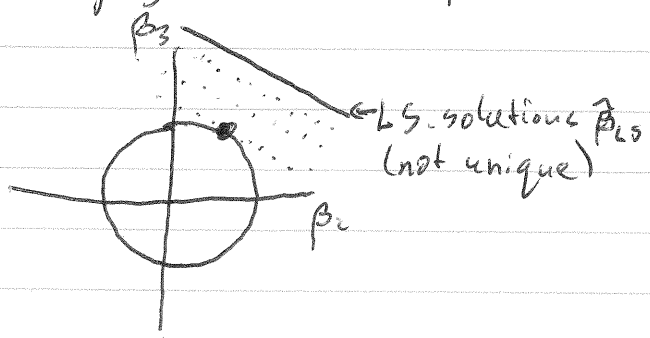 β₃
← LS. solutions β̂_LS
(not unique)
β₂